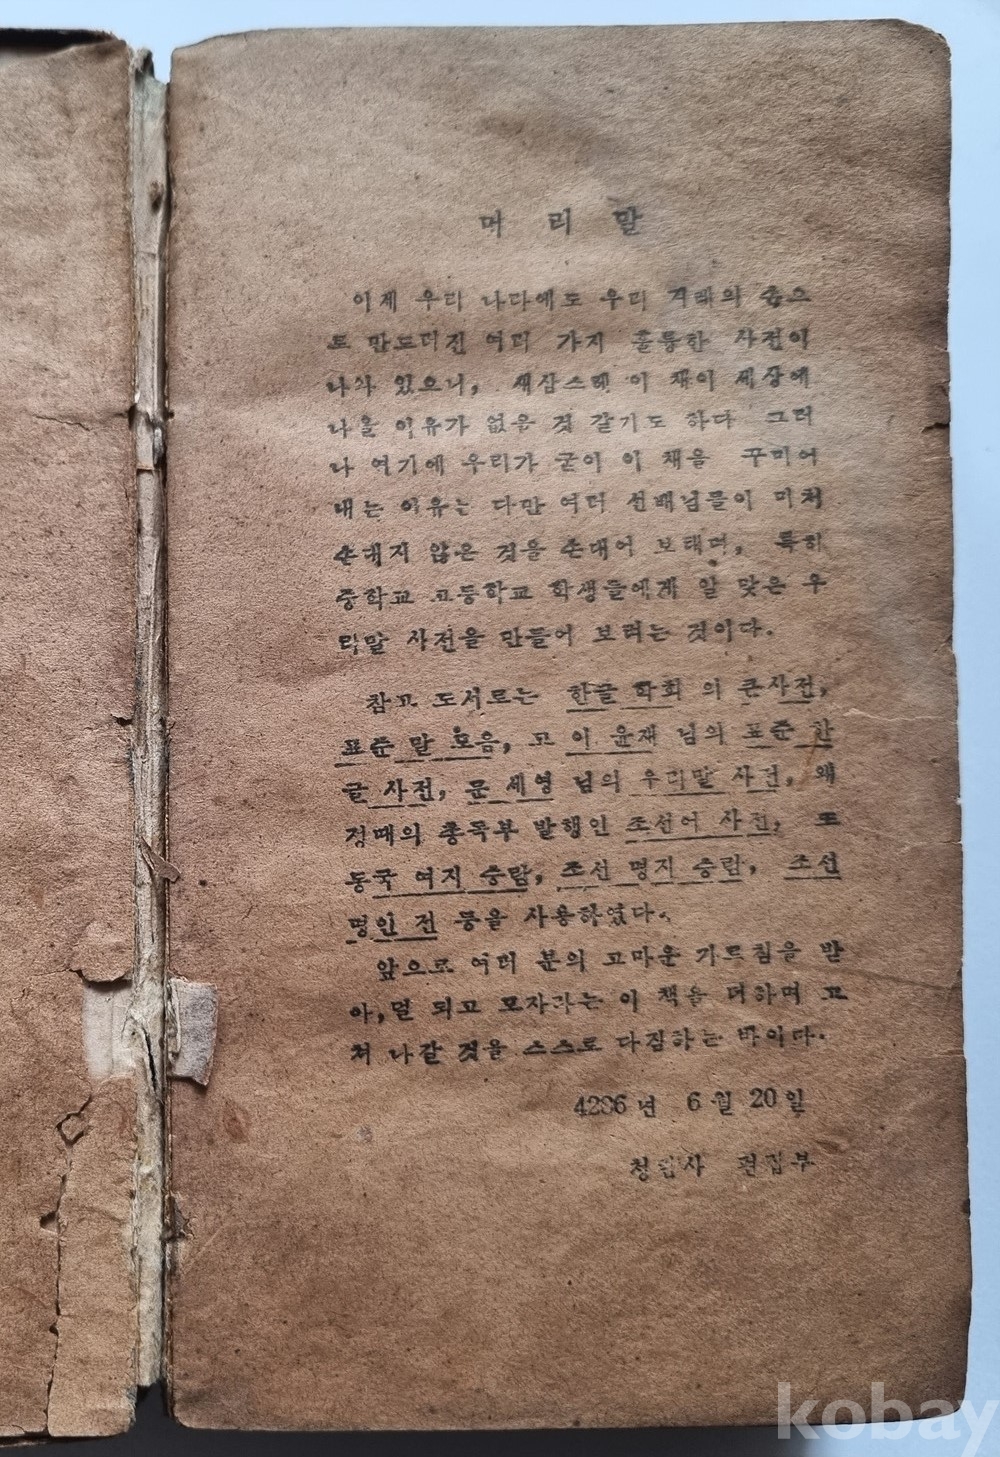 머 리 말
이제 우리 나라에도 우리 겨레의 손으
로 만드러진 여러 가지 훌륭한 사전이
나와 있으니, 새삼스레 이 책이 세상에
나올 이유가 없을 것 같기도 하다 그러
나 여기에 우리가 굳이 이 책을 꾸미어
내는 이유는 다만 여러 선배님들이 미처
손대지 않은 것을 손대어 보태며, 특히
중학교 고등학교 학생들에게 알 맞은 우
리말 사전을 만들어 보려는 것이다.
참고 도서로는 한글 학회 의 큰사전,
표준 말 모음, 고 이 윤재 님의 표준 한
글 사전, 문 세영 님의 우리말 사전, 왜
정때의 총독부 발행인 조선어 사전, 또
동국 여지 승람, 조선 명지 승람, 조선
명인 전 등을 사용하였다.
앞으로 여러 분의 고마운 가르침을 받
아, 덜 되고 모자라는 이 책을 더하며 고
쳐 나갈 것을 스스로 다짐하는 바이다.
4286년 6월 20일
편집부
kobay